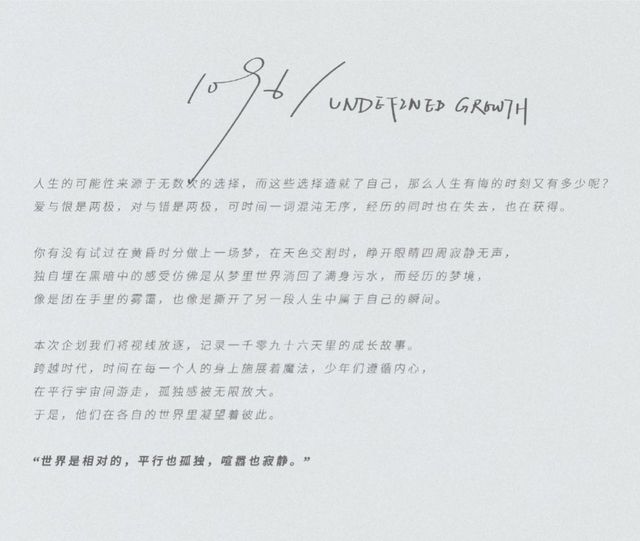 1096/ UNDEFINED GROWTH
人生的可能性来源于无数次的选择，而这些选择造就了自己，那么人生有悔的时刻又有多少呢？
爱与恨是两极，对与错是两极，可时间一词混沌无序，经历的同时也在失去，也在获得。
你有没有试过在黄昏时分做上一场梦，在天色交割时，睁开眼睛四周寂静无声，
独自埋在黑暗中的感受仿佛是从梦里世界淌回了满身污水，而经历的梦境，
像是团在手里的雾霭，也像是撕开了另一段人生中属于自己的瞬间。
本次企划我们将视线放逐，记录一千零九十六天里的成长故事。
跨越时代，时间在每一个人的身上施展着魔法，少年们遵循内心，
在平行宇宙间游走，孤独感被无限放大。
于是，他们在各自的世界里凝望着彼此。
“世界是相对的，平行也孤独，喧嚣也寂静。”